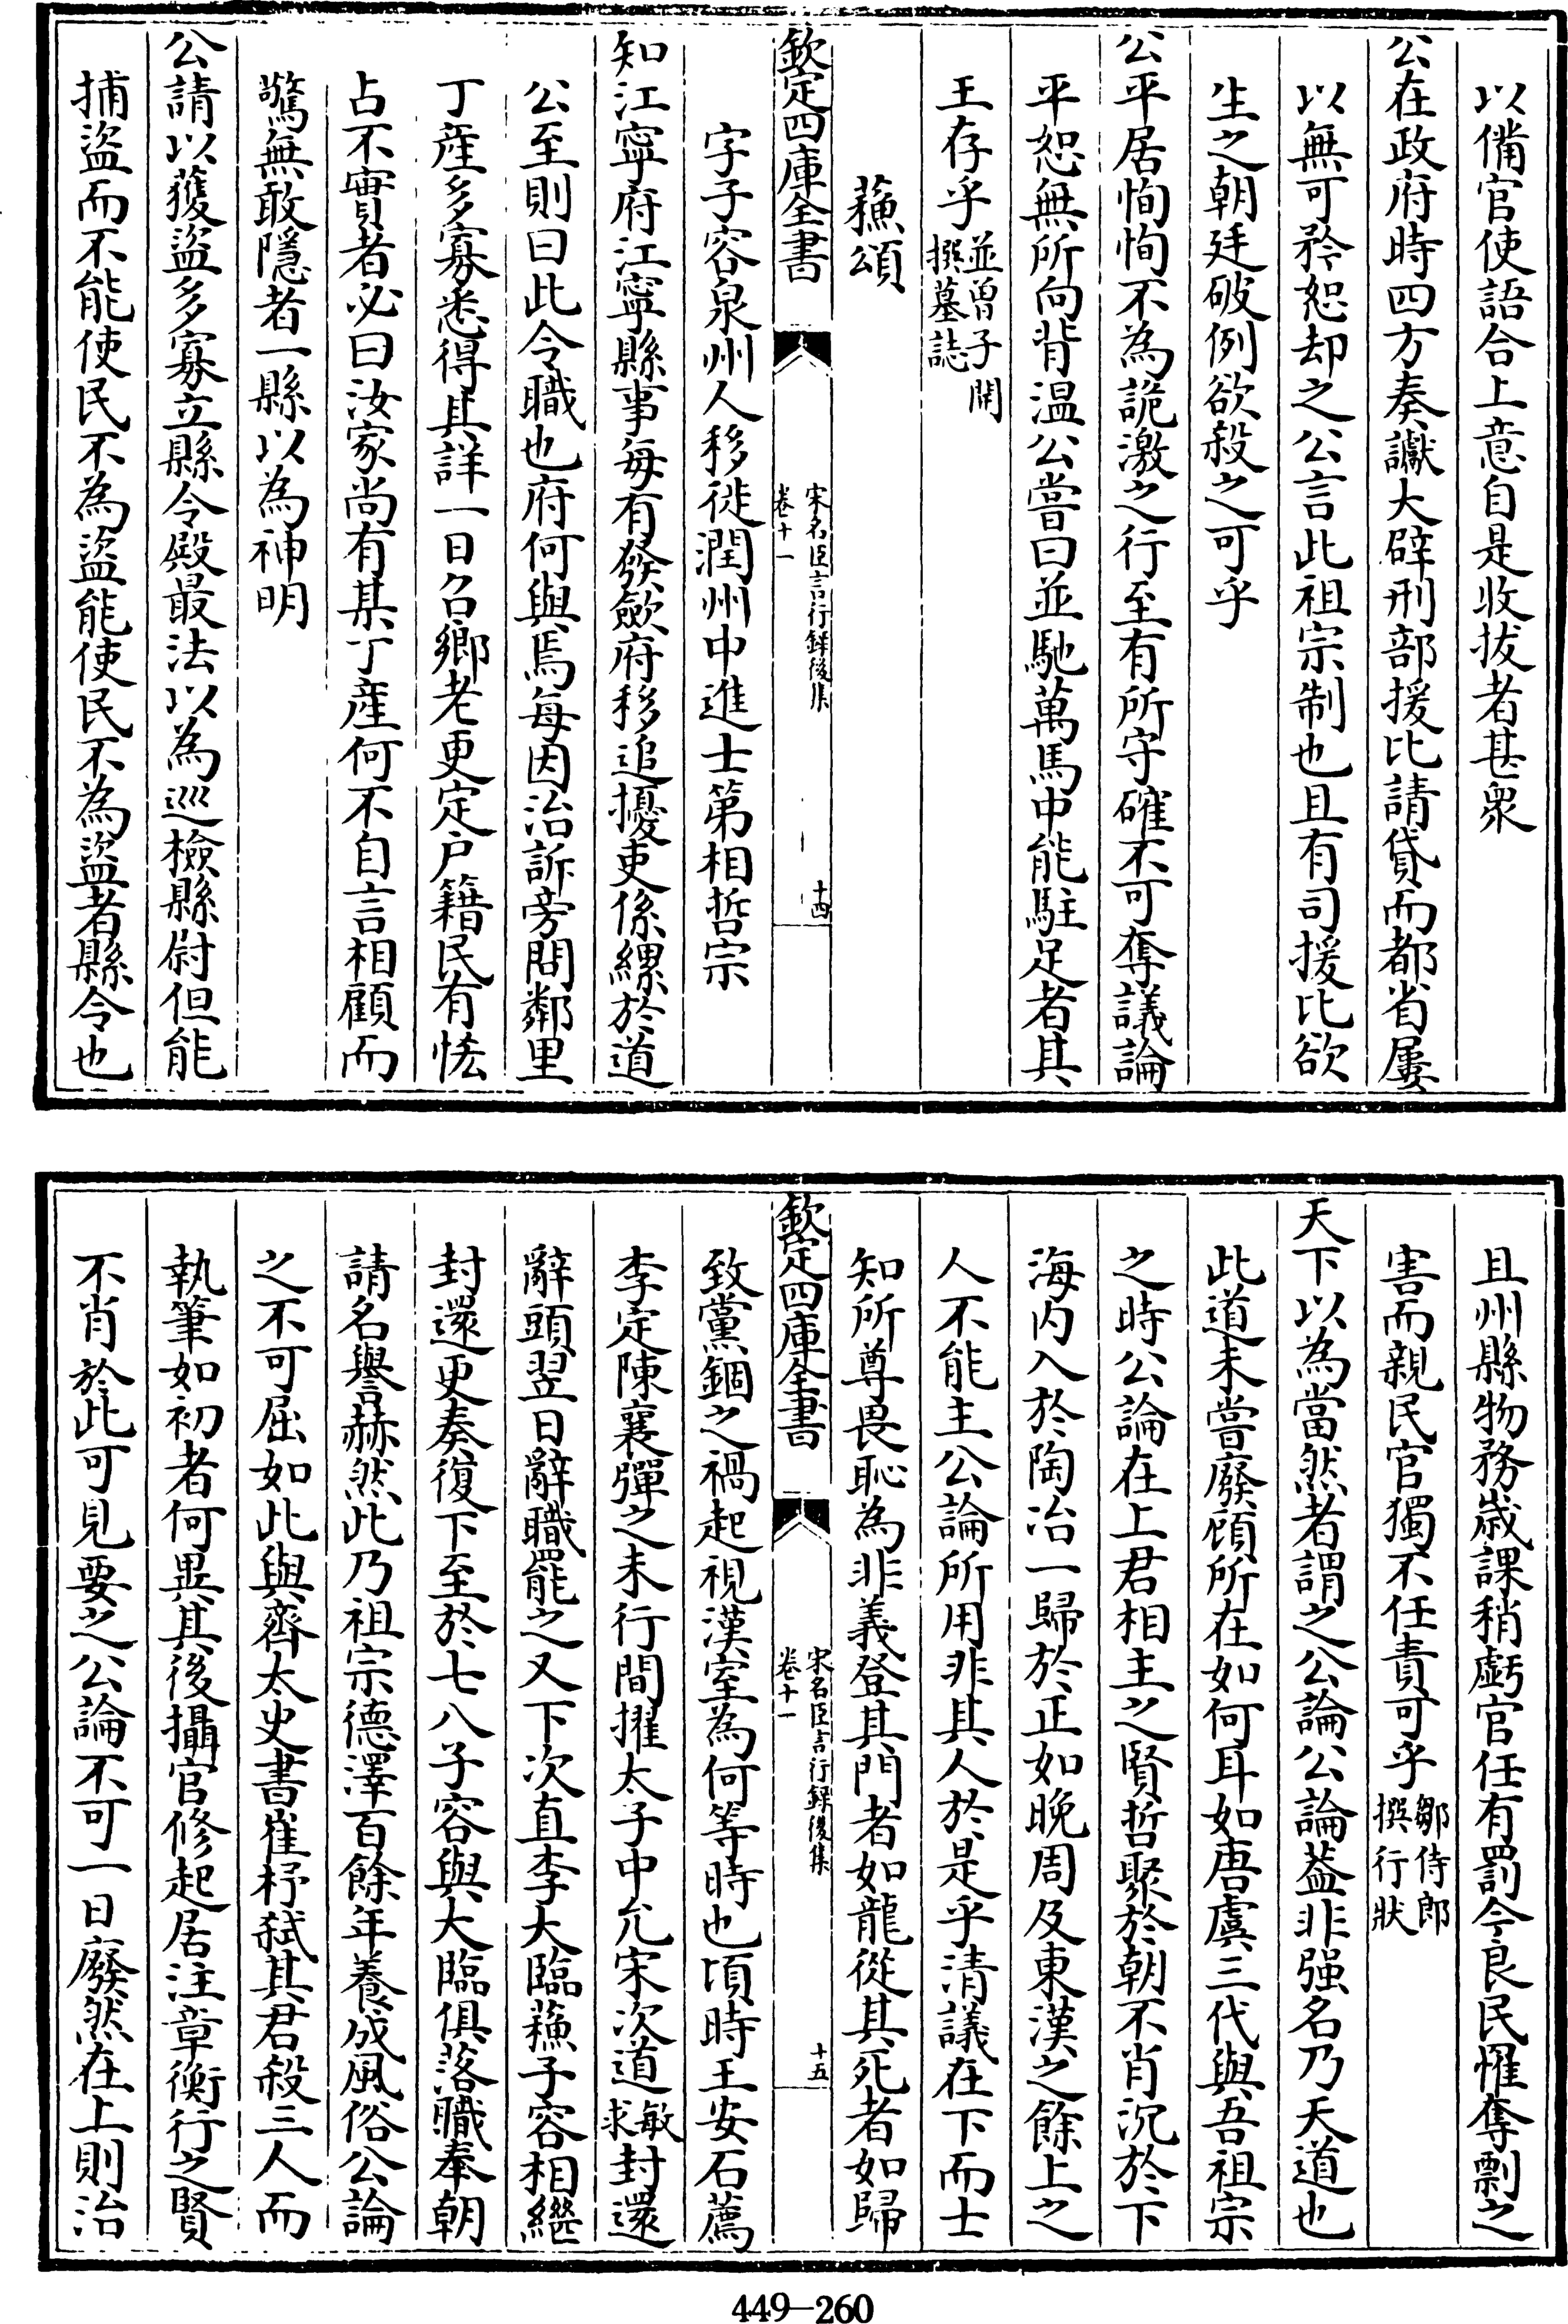 以備官使語合上意自是收拔者甚衆
公在政府時四方奏讞大辟刑部援比請貸而都省屢
以無可矜恕却之公言此祖宗制也且有司援比欲
生之朝廷破例欲殺之可乎
公平居恂恂不為詭激之行至有所守確不可奪議論
平恕無所向背温公嘗曰並馳萬馬中能駐足者其
王存乎並曾子開撰墓誌
蘓頌
欽定四庫全書
宋名臣言行録後集
卷十一
十四
字子容泉州人移徙潤州中進士第相哲宗
知江寧府江寧縣事每有發斂府移追擾吏係縲於道
公至則曰此令職也府何與焉每因治訴旁問鄰里
丁産多寡悉得其詳一日召鄉老更定户籍民有恡
占不實者必曰汝家尚有某丁産何不自言相顧而
驚無敢隱者一縣以為神明
公請以獲盜多寡立縣令殿最法以為巡檢縣尉但能
捕盜而不能使民不為盜能使民不為盜者縣令也
且州縣物務歲課稍虧官任有罰今良民罹奪剽之
害而親民官獨不任責可乎鄒侍郎撰行狀
天下以為當然者謂之公論公論葢非强名乃天道也
此道未嘗廢顧所在如何耳如唐虞三代與吾祖宗
之時公論在上君相主之賢哲聚於朝不肖沉於下
海内入於陶冶一歸於正如晚周及東漢之餘上之
人不能主公論所用非其人於是乎清議在下而士
知所尊畏恥為非義登其門者如龍從其死者如歸
欽定四庫全書
宋名臣言行録後集
卷十一
十五
致黨錮之禍起視漢室為何等時也頃時王安石薦
李定陳襄彈之未行間擢太子中允宋次道敏求封還
辭頭翌日辭職罷之又下次直李大臨蘓子容相繼
封還更奏復下至於七八子容與大臨俱落職奉朝
請名譽赫然此乃祖宗德澤百餘年養成風俗公論
之不可屈如此與齊太史書崔杼弑其君殺三人而
執筆如初者何異其後攝官修起居注章衡行之賢
不肖於此可見要之公論不可一日廢然在上則治
449-260